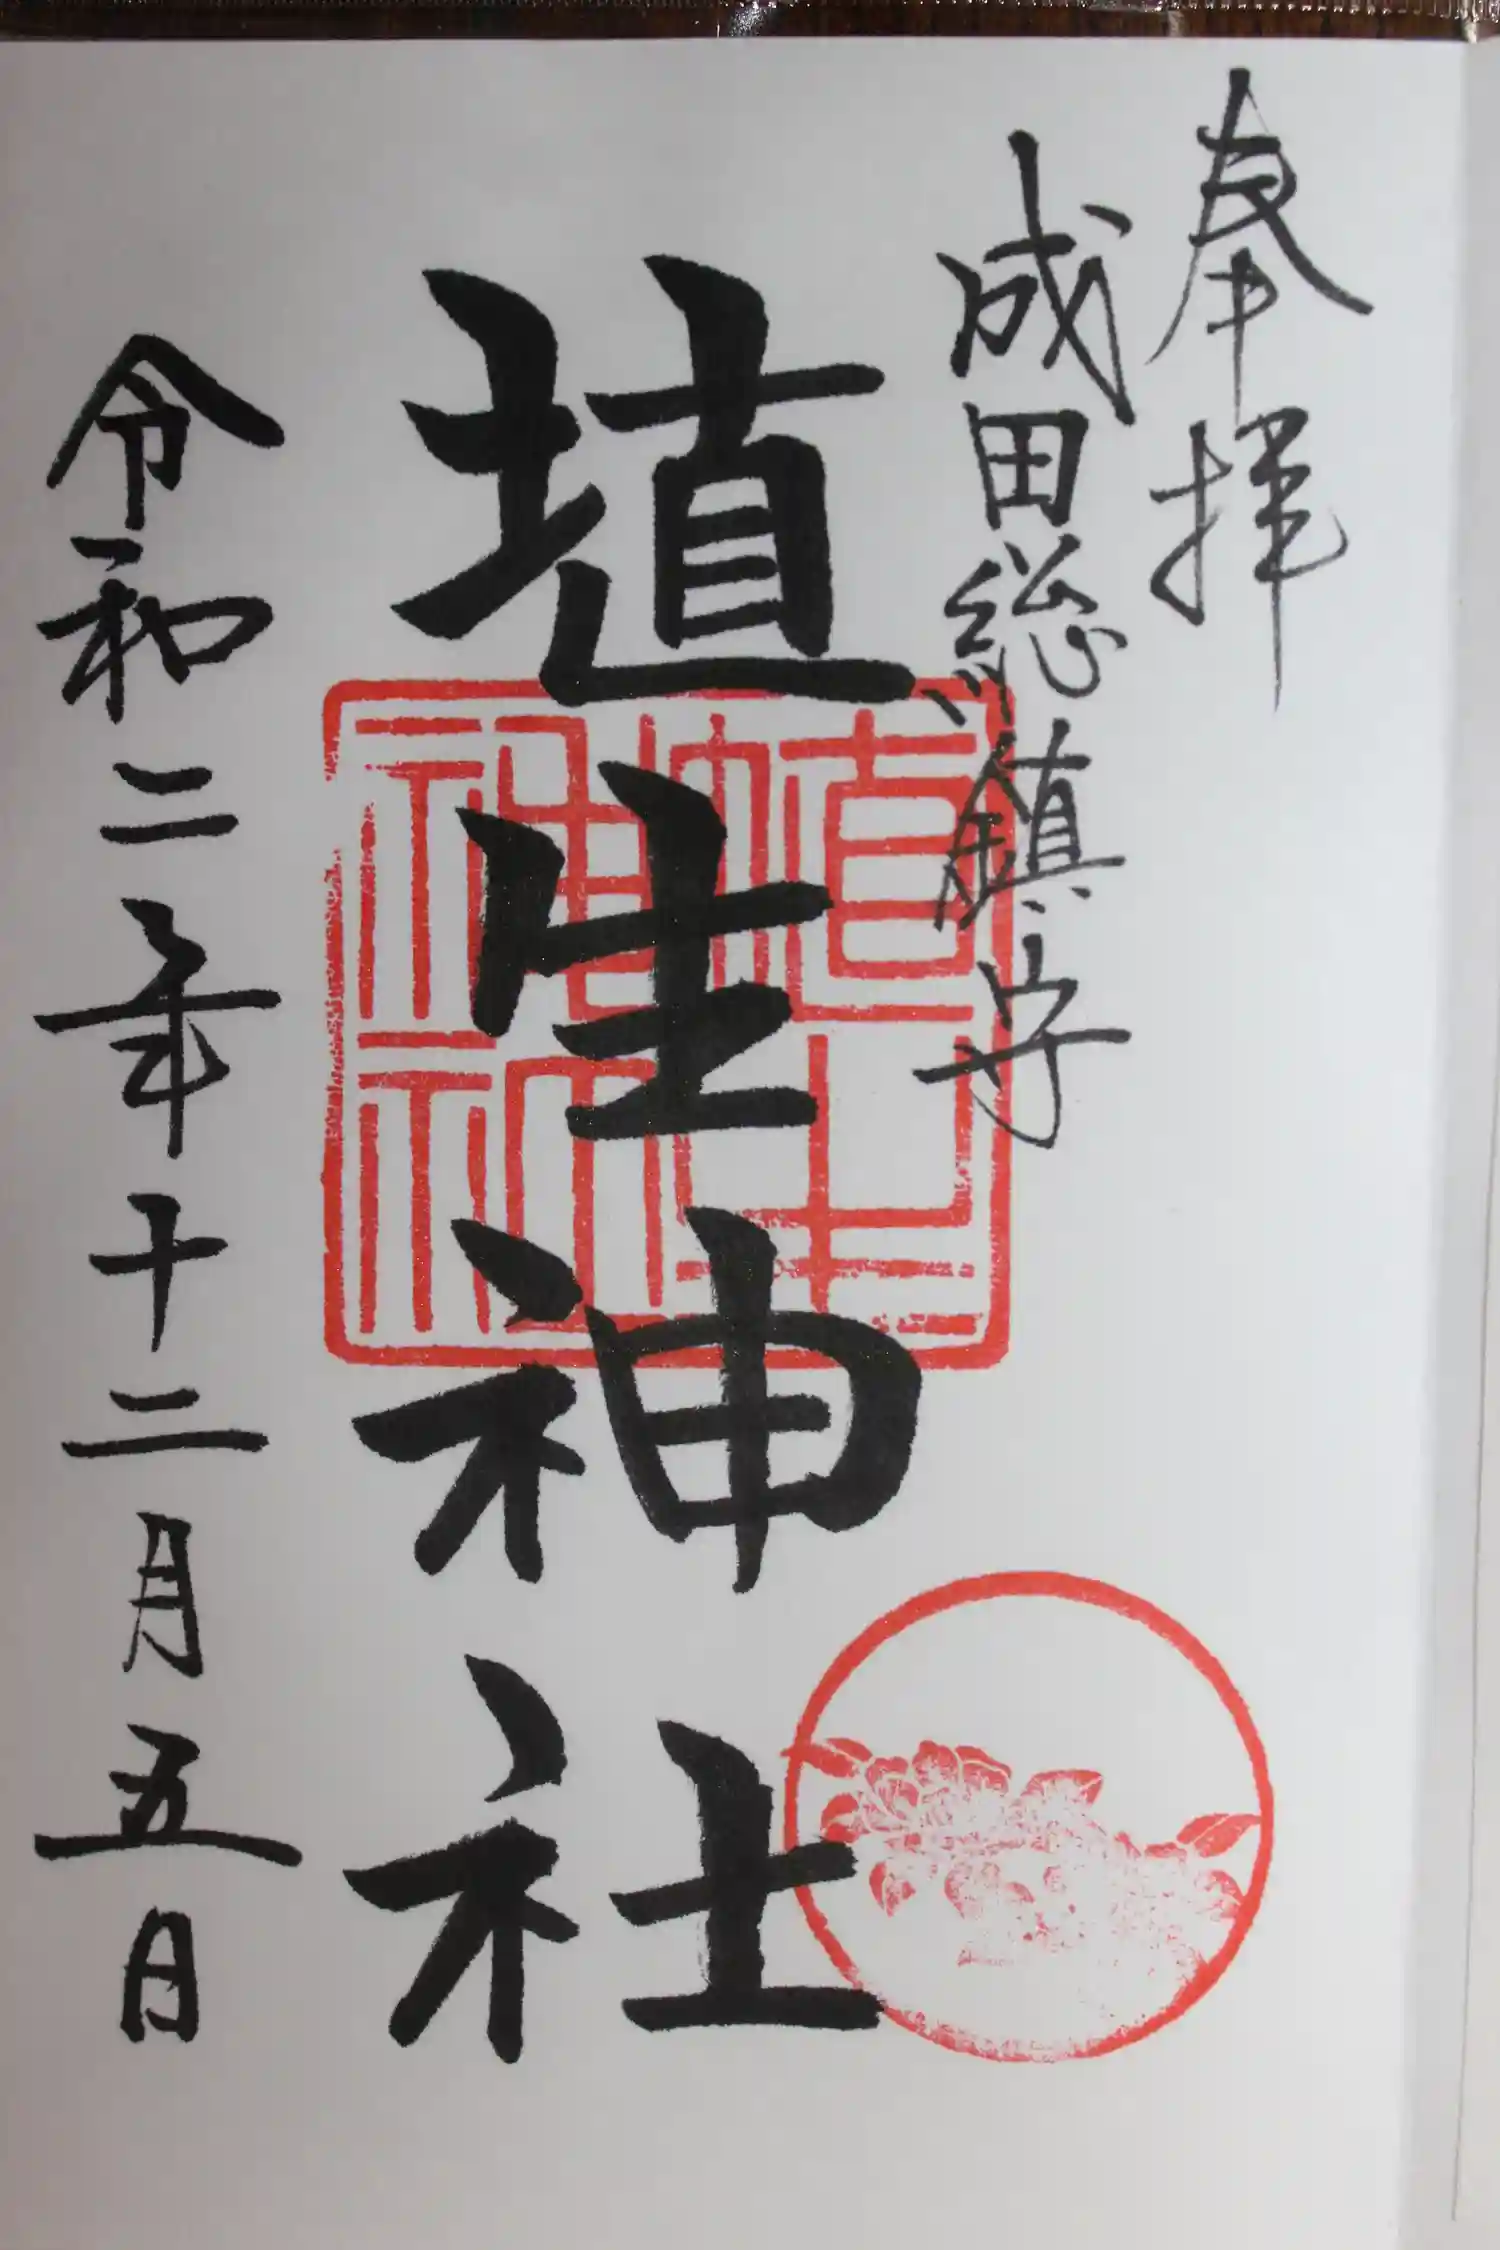 奉拝
成田総鎮守
埴生神社
令和二年十二月五日